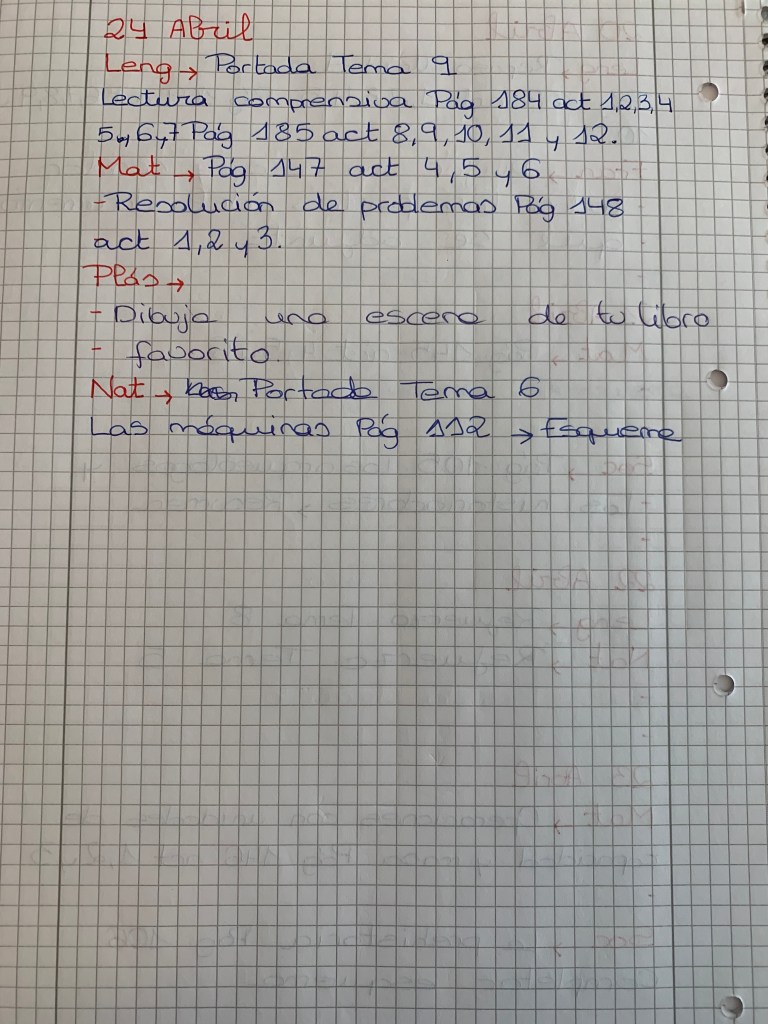 24 ABril
Leng → Portada Tema 9
Lectura comprensiva Pág 184 act 1,2,3,4
5,6,7 Pág 185 act 8,9,10,11 y 12.
Mat → Pág 147 act 4,5 y 6
-Resolución de problemas Pág 148
act 1,2 y 3.
Plás →
- Dibuja una escena de tu libro
- favorito.
Nat → Portada Tema 6
Las máquinas Pág 112 → Esquema